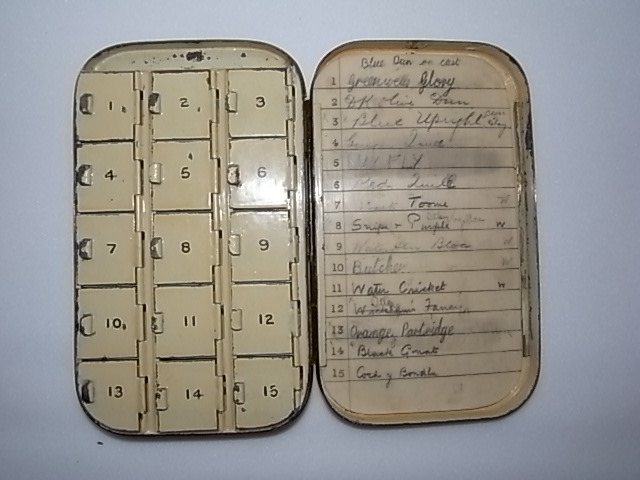 1 2 3
4 5 6
7 8 9
10 11 12
13 14 15
Blue Dun on cast
1 Greenwells Glory
2 DK Olive Dun
3 Blue Upright
4
5 MAY FLY
6 Red Quill
7 Toome W
8 Snipe + Purple W
9 W
10 Butcher W
11 Water Cricket W
12 Fancy
13 Orange Partridge
14 Black Gnat
15 Cock y Bondhu